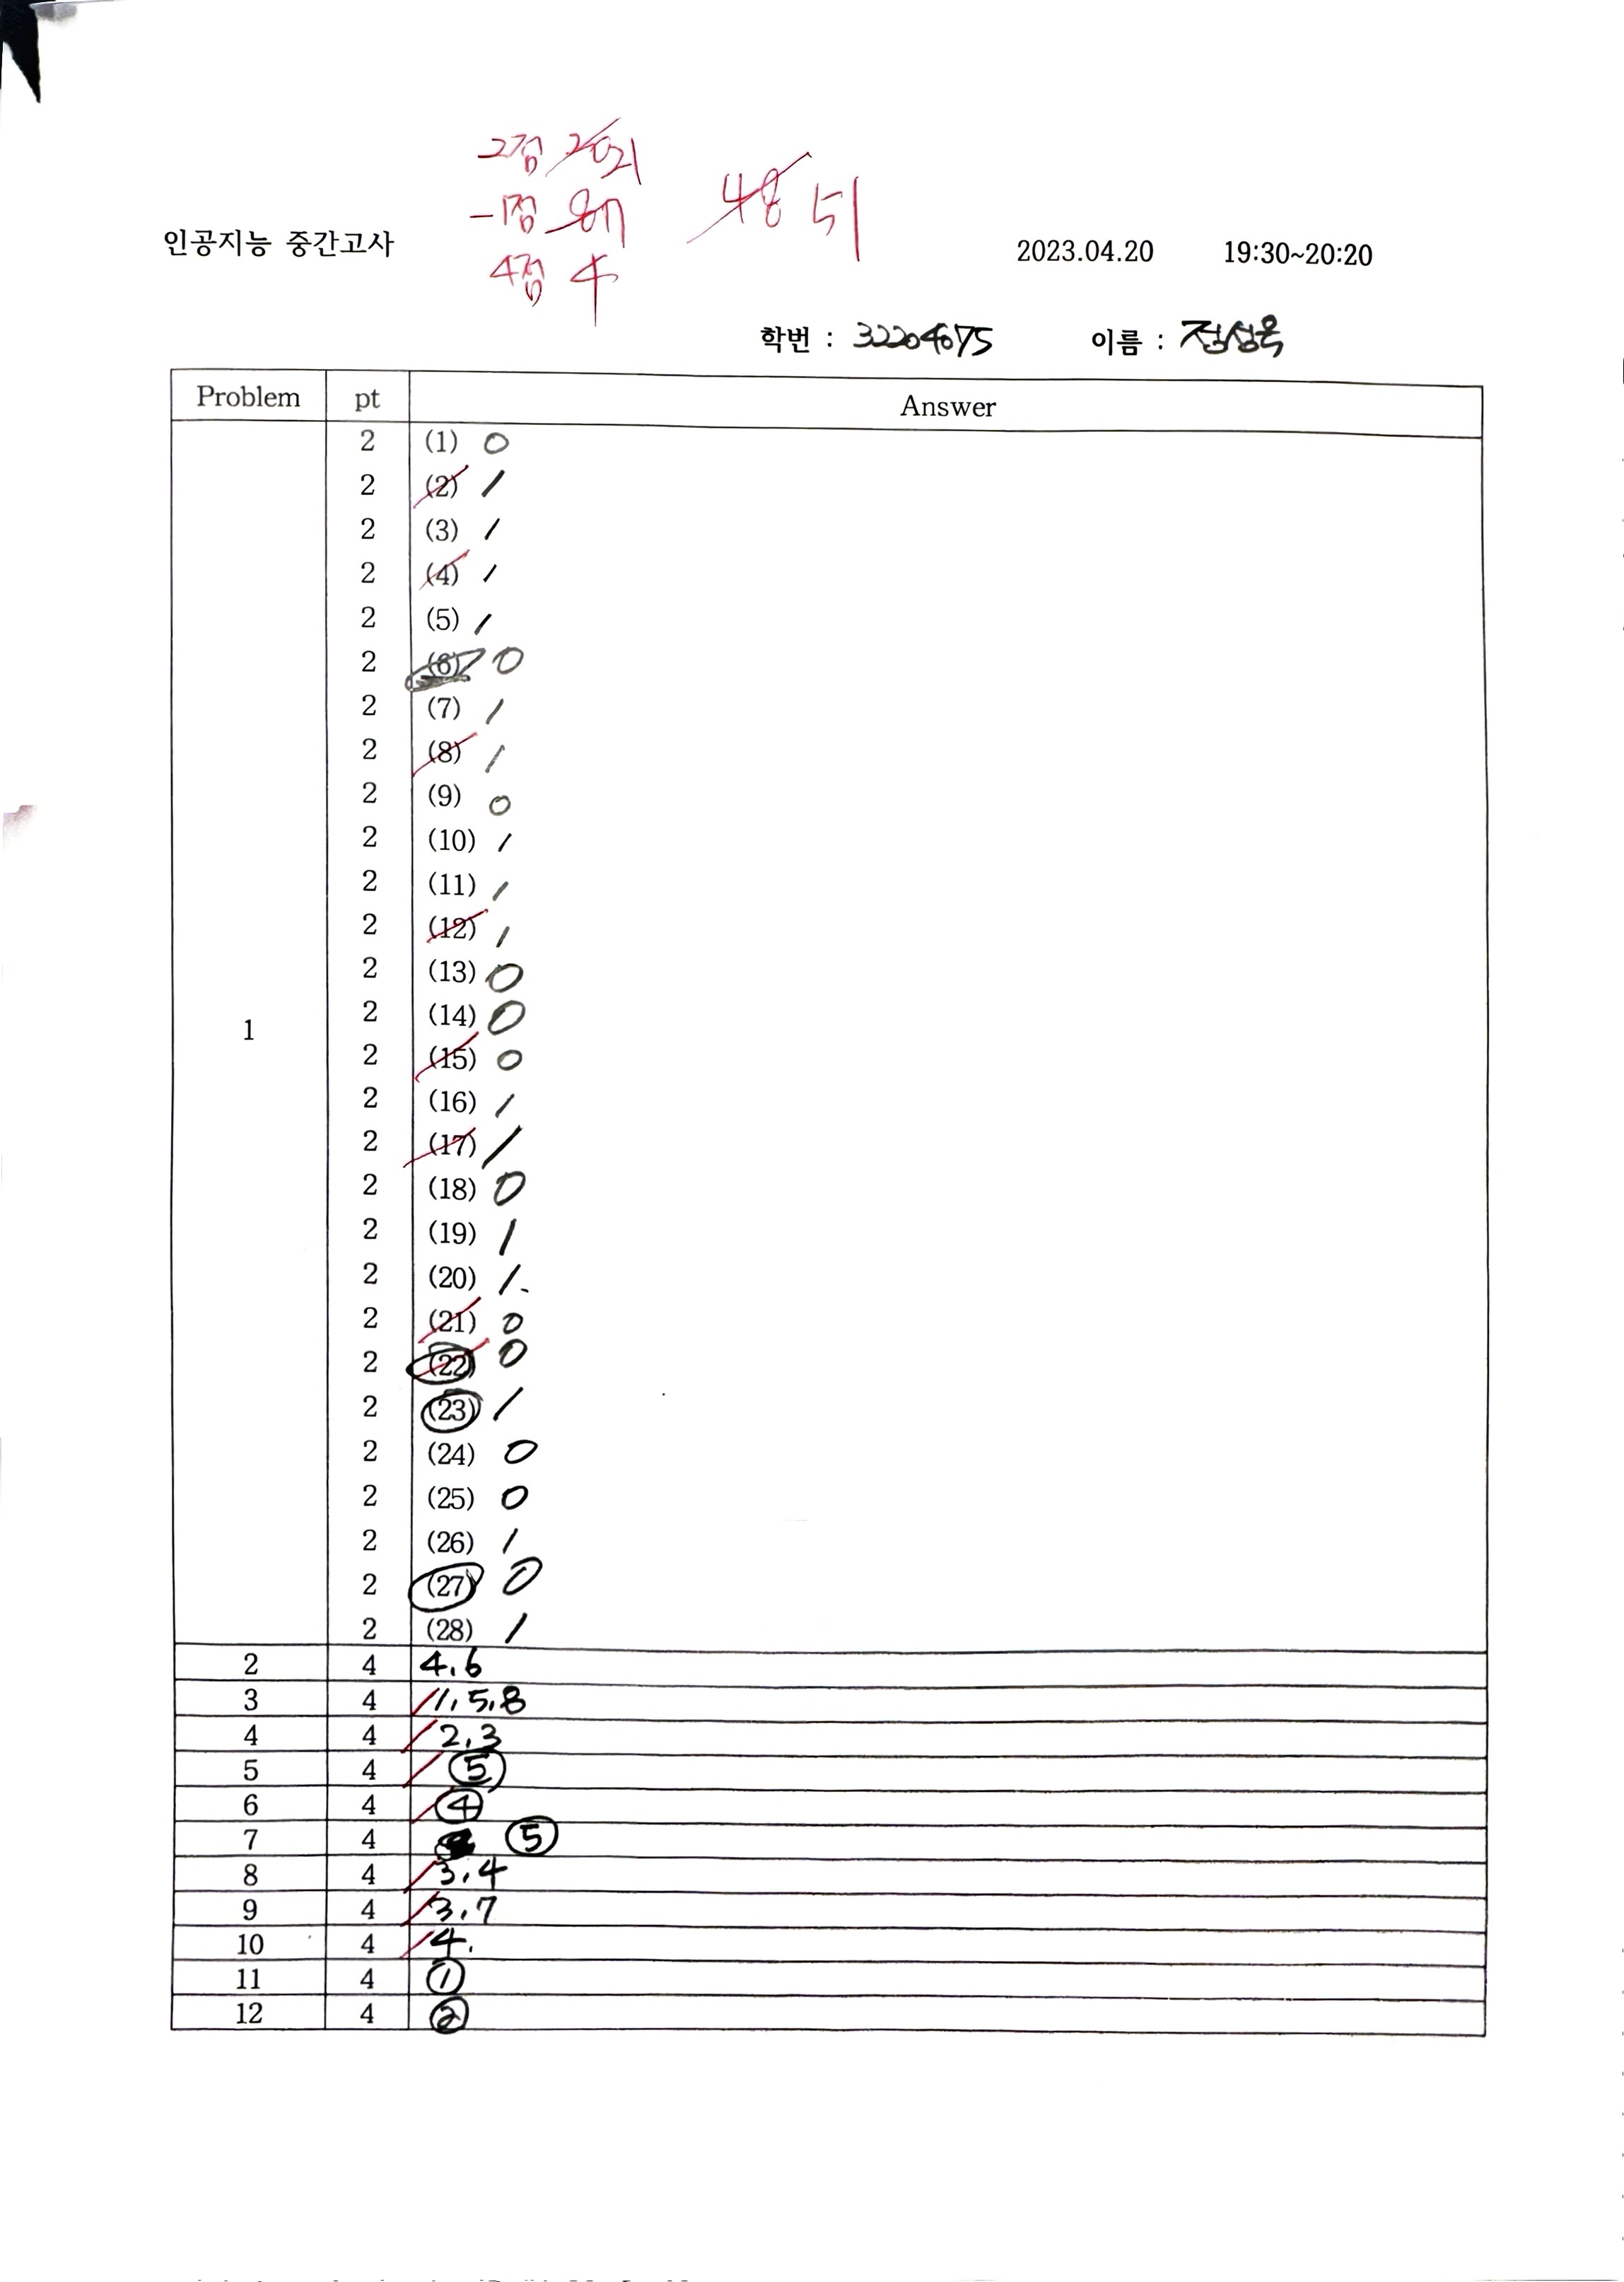 2점 20 21
-1점 8개 7
4점 4
48 51
인공지능 중간고사 2023.04.20 19:30~20:20
학번 : 32204075 이름 : 정성욱
Problem pt Answer
2 (1) 0
2 (2) 1
2 (3) 1
2 (4) 1
2 (5) 1
2 (6) 0
2 (7) 1
2 (8) 1
2 (9) 0
2 (10) 1
2 (11) 1
2 (12) 1
2 (13) 0
2 (14) 0
1 2 (15) 0
2 (16) 1
2 (17) 1
2 (18) 0
2 (19) 1
2 (20) 1.
2 (21) 0
2 (22) 0
2 (23) 1
2 (24) 0
2 (25) 0
2 (26) 1
2 (27) 0
2 (28) 1
2 4 4,6
3 4 1,5,8
4 4 2,3
5 4 ⑤
6 4 ④
7 4 ⑤
8 4 3,4
9 4 3,7
10 4 4.
11 4 ①
12 4 ②